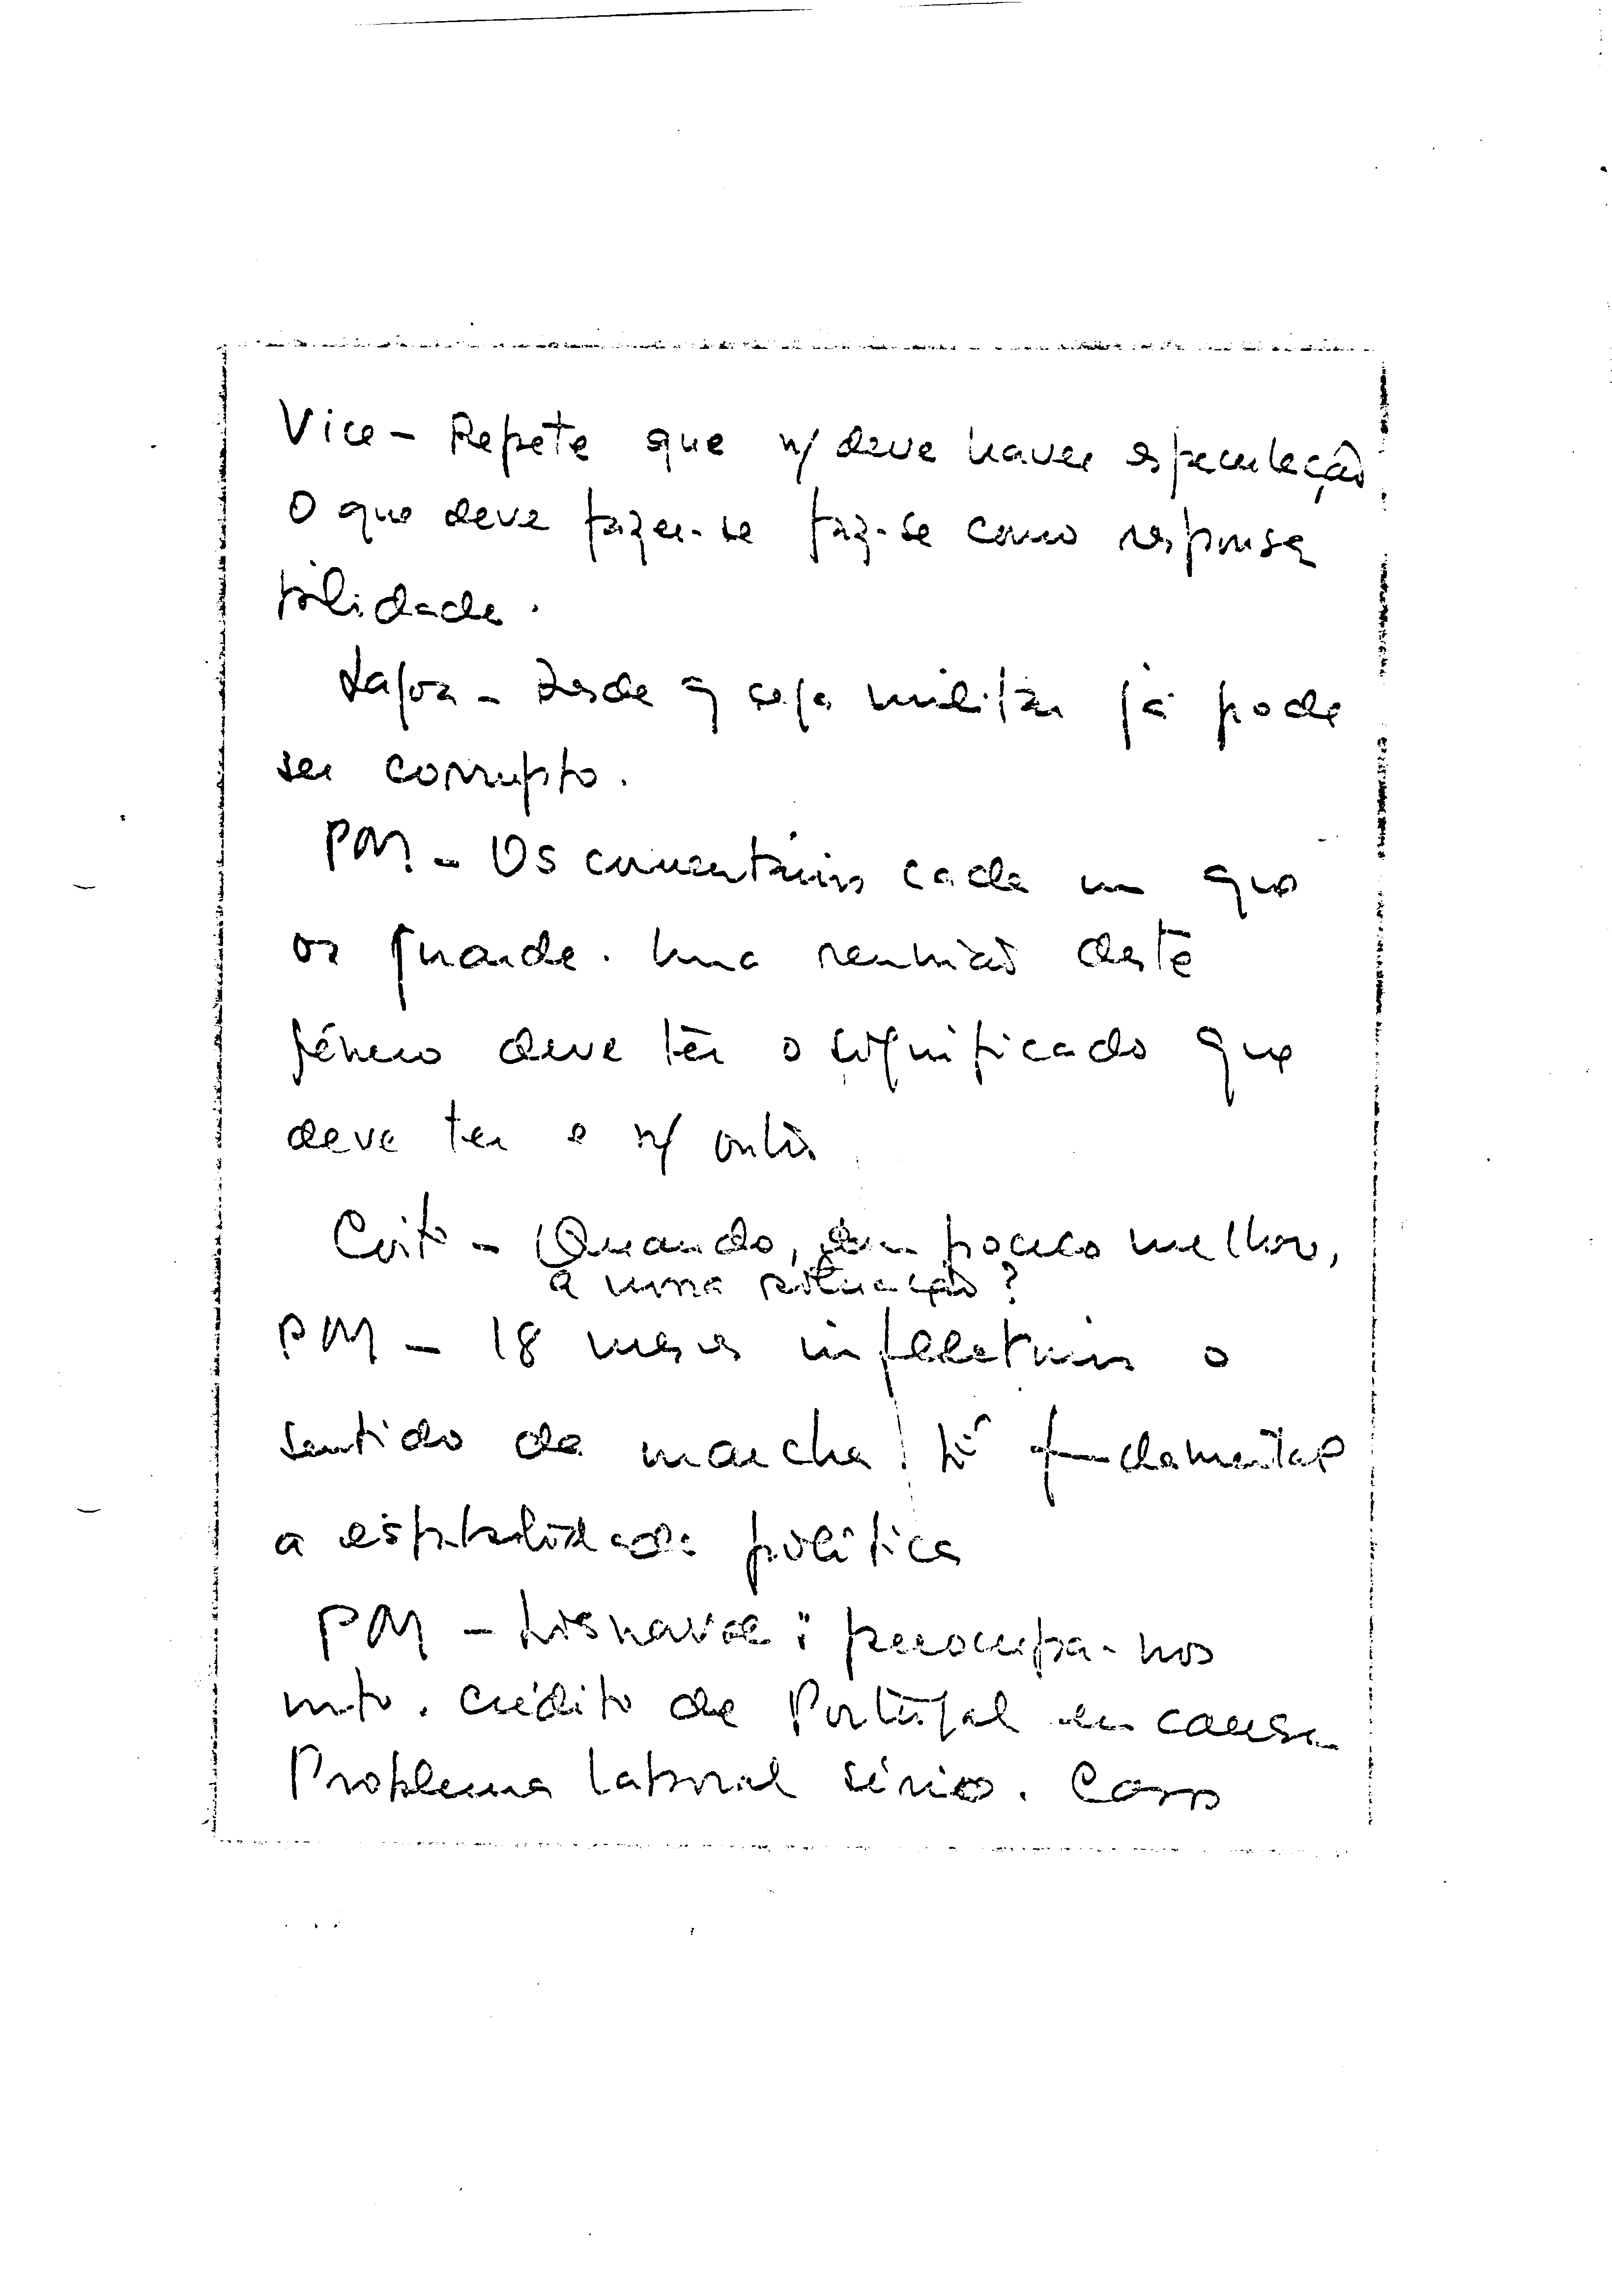 Vice - Repete que n/ deve haver especulação
O que deve fazer-se faz-se como responsa
bilidade.
- Desde q seja militar já pode
ser corrupto.
PM - Os comentários cada um que
os guarde. Uma reunião deste
género deve ter o significado que
deve ter e n/ outro
Coito - Quando, um pouco melhor,
a uma situação?
PM - 18 meses o
sentido da marcha! É fundamental
a estabilidade política
PM - Lisnave: preocupa-nos
mto. Crédito de Portugal em causa
Problema laboral sério. Caso